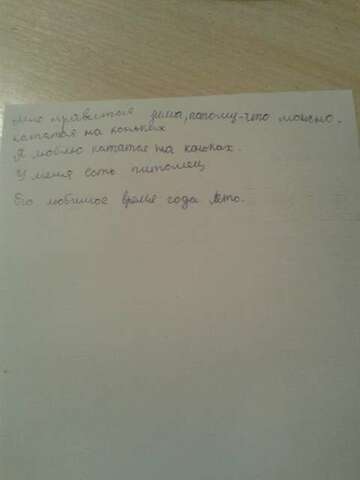 мне нравится зима, потому-что можно.
кататся на коньках
Я люблю кататся на коньках.
У меня есть питомец
Его любимое время года лето.